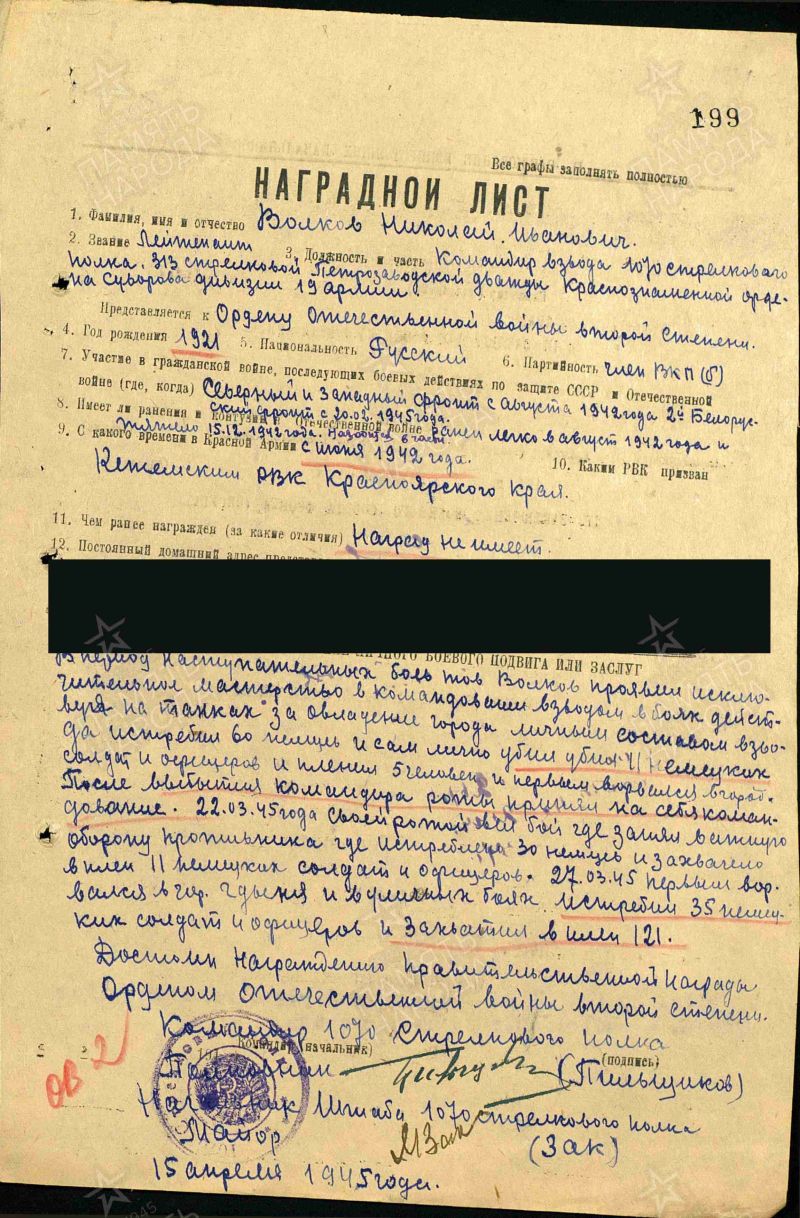 199
Все графы заполнять полностью
НАГРАДНОЙ ЛИСТ
1. Фамилия, имя и отчество Волков Николай Иванович.
2. Звание Лейтенант 3. Должность и часть Командир взвода 1070 стрелкового
полка, 313 стрелковой Петрозаводской дважды Краснознаменной орде-
на Суворова дивизии 19 армии.
Представляется к Ордену Отечественной войны второй степени.
4. Год рождения 1921 5. Национальность Русский 6. Партийность член ВКП(б)
7. Участие в гражданской войне, последующих боевых действиях по защите СССР и Отечественной
войне (где, когда) Северный и Западный фронт с августа 1942 года 2й Белорус-
ский фронт с 20.02.1945 года.
8. Имеет ли ранения и контузии в Отечественной войне Ранен легко в август 1942 года и
тяжело 15.12.1942 года. Находится в части
9. С какого времени в Красной Армии с июня 1942 года. 10. Каким РВК призван
Кежемским РВК Красноярского края.
11. Чем ранее награжден (за какие отличия) Наград не имеет.
12. Постоянный домашний адрес
ЛИЧНОГО БОЕВОГО ПОДВИГА ИЛИ ЗАСЛУГ
В период наступательных боев тов Волков проявил исклю-
чительное мастерство в командовании взводом в боях дейст-
вуя на танках за овладение города личным составом взво-
да истребил 60 немцев и сам лично убил убил 11 немецких
солдат и офицеров и пленил 5 человек и первым ворвался в город.
После выбытия командира роты принял на себя коман-
дование. 22.03.45 года своей ротой вел бой где занял важную
оборону противника где истреблено 30 немцев и захвачено
в плен 11 немецких солдат и офицеров. 27.03.45 первым вор-
вался в гор. Гдыня и в уличных боях истребил 35 немец-
ких солдат и офицеров и захватил в плен 121.
Достоин награждению правительственной награды
Орденом Отечественной войны второй степени.
Командир 1070 стрелкового полка
Командир (начальник)
(подпись)
Полковник (Пильщиков)
ОВ 2
Начальник Штаба 1070 стрелкового полка
Майор МЗак (Зак)
15 апреля 1945 года.
ПАМЯТЬ НАРОДА